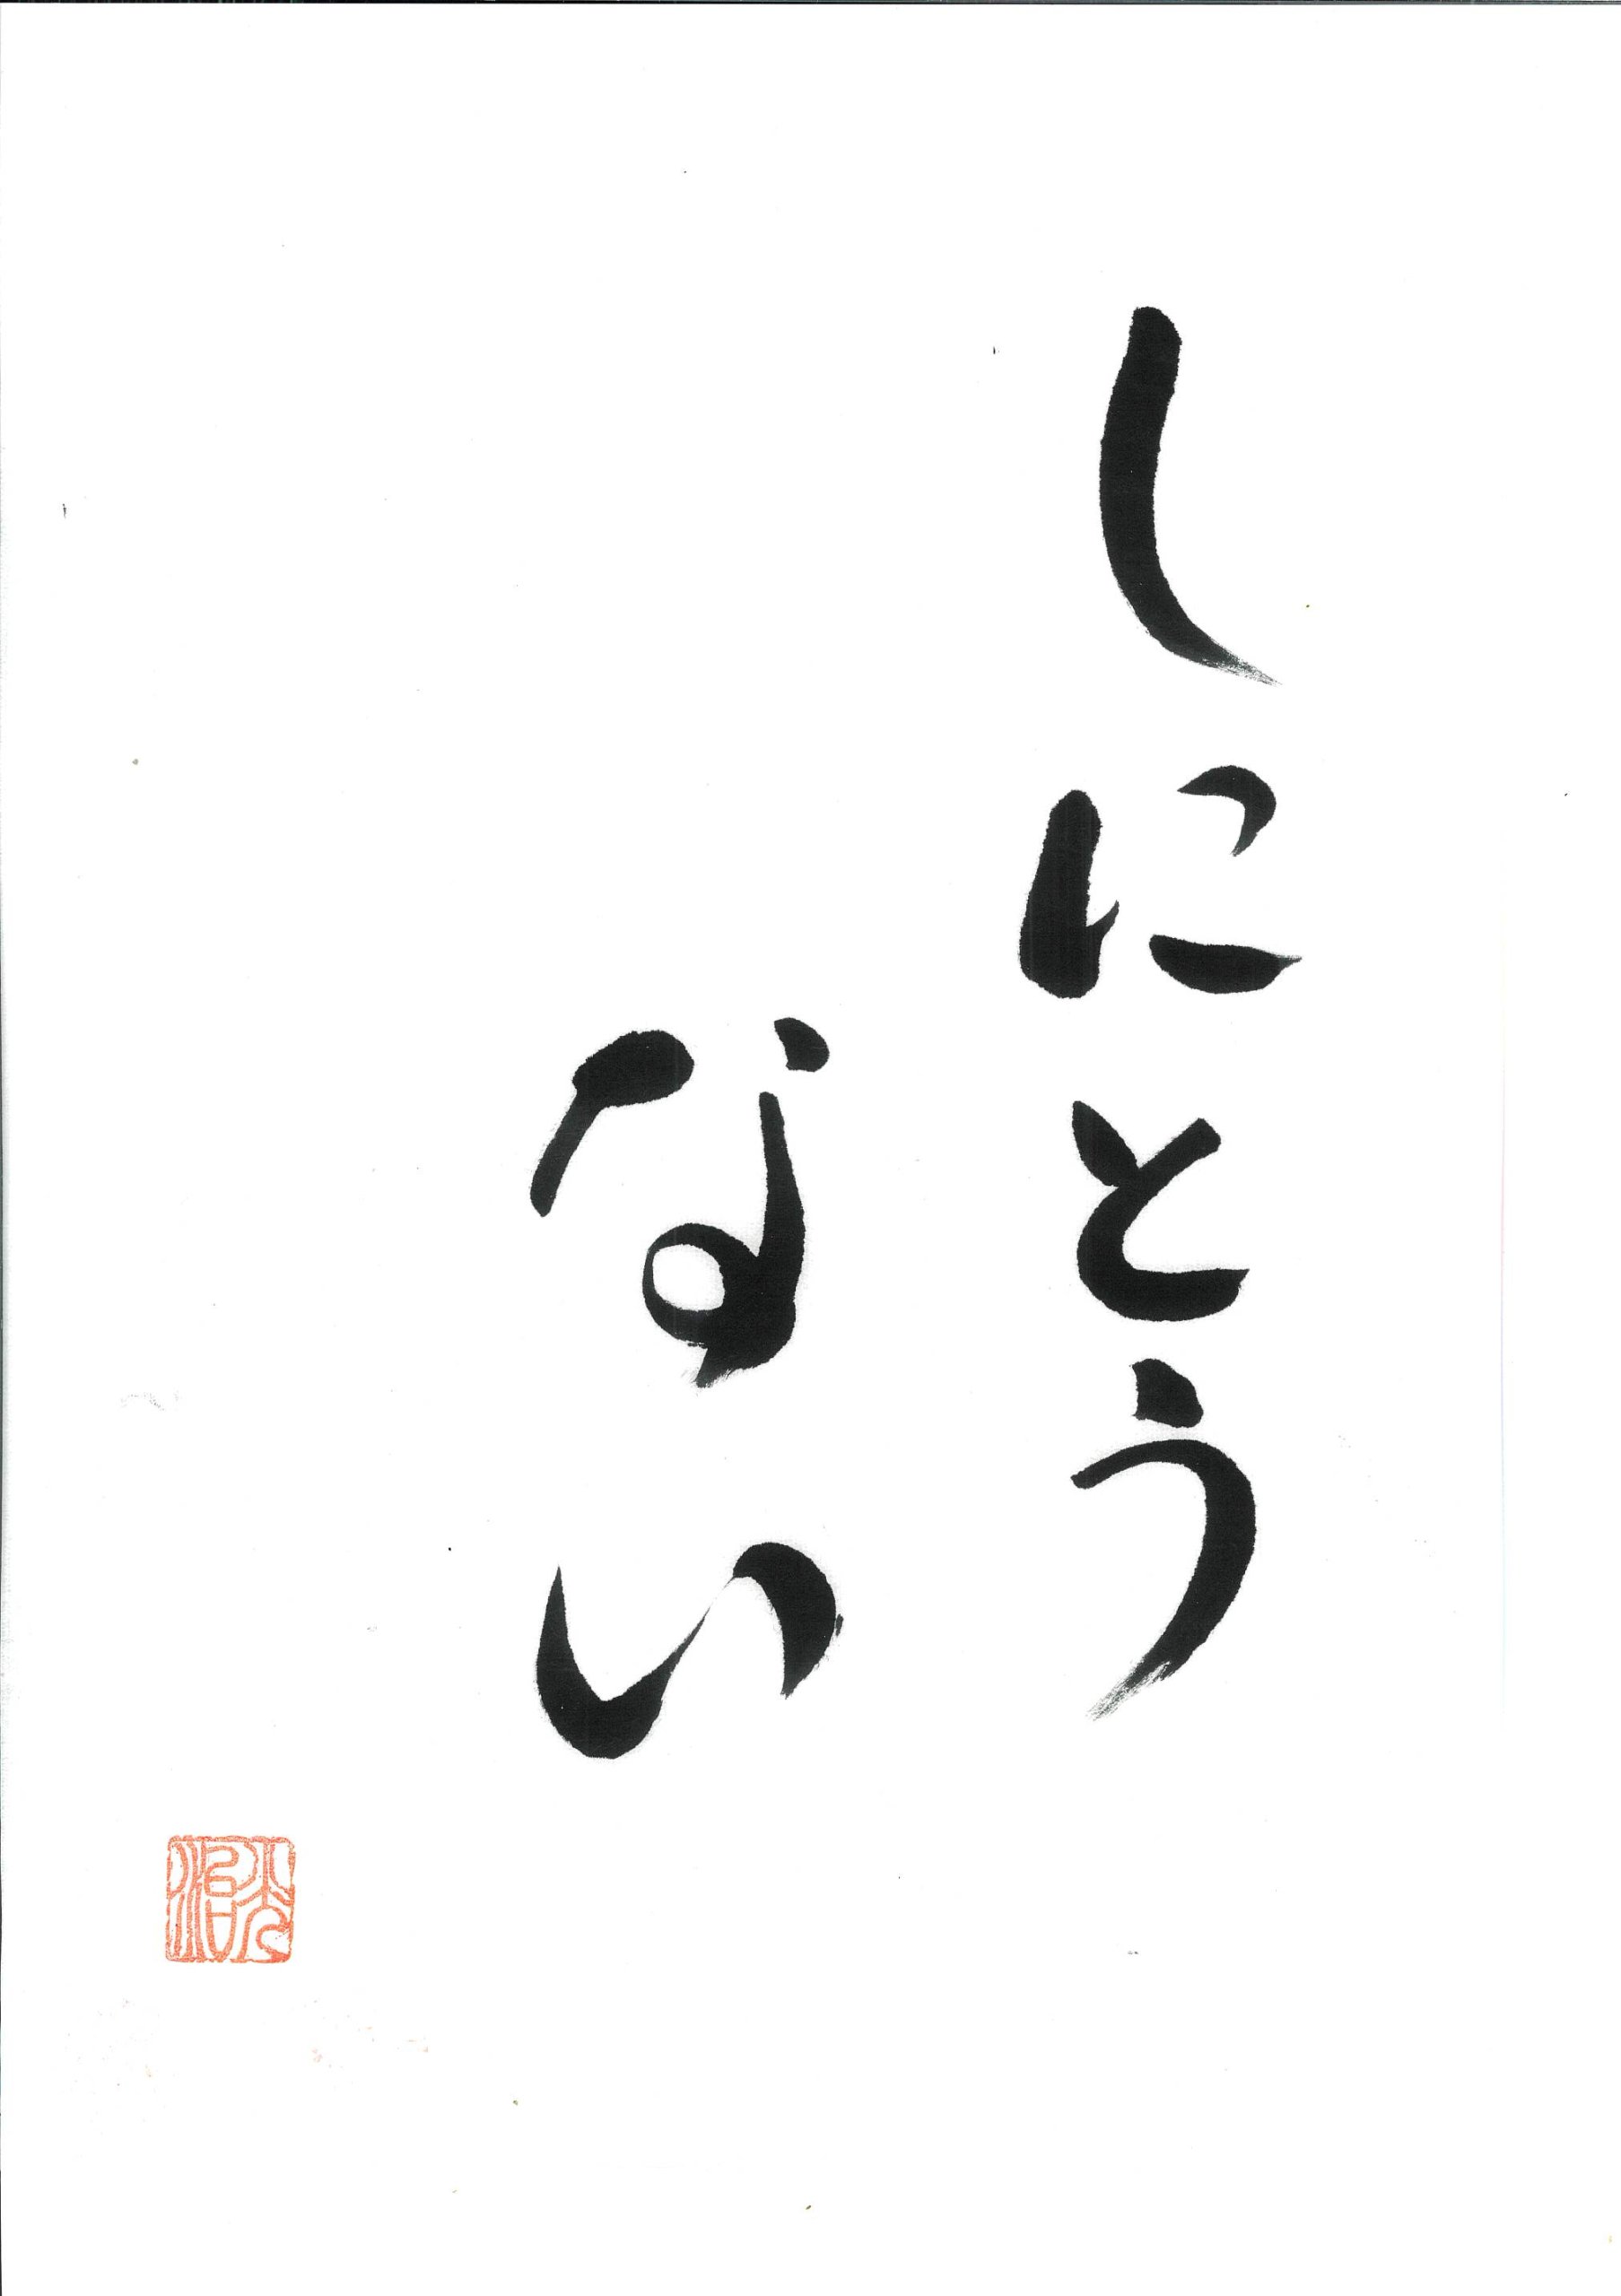 しにとう
ない